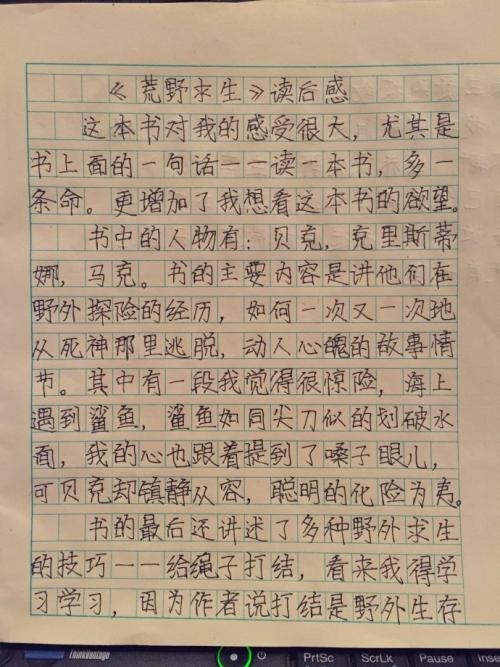 《荒野求生》读后感
这本书对我的感受很大，尤其是
书上面的一句话一一读一本书，多一
条命。更增加了我想看这本书的欲望。
书中的人物有：贝克，克里斯蒂
娜，马克。书的主要内容是讲他们在
野外探险的经历，如何一次又一次地
从死神那里逃脱，动人心魄的故事情
节。其中有一段我觉得很惊险，海上
遇到鲨鱼，鲨鱼如同尖刀似的划破水
面，我的心也跟着提到了嗓子眼儿，
可贝克却镇静从容，聪明的化险为夷。
书的最后还讲述了多种野外求生
的技巧一一给绳子打结，看来我得学
习学习，因为作者说打结是野外生存
ThinkVantage
PrtSc ScrLk Pause Inse